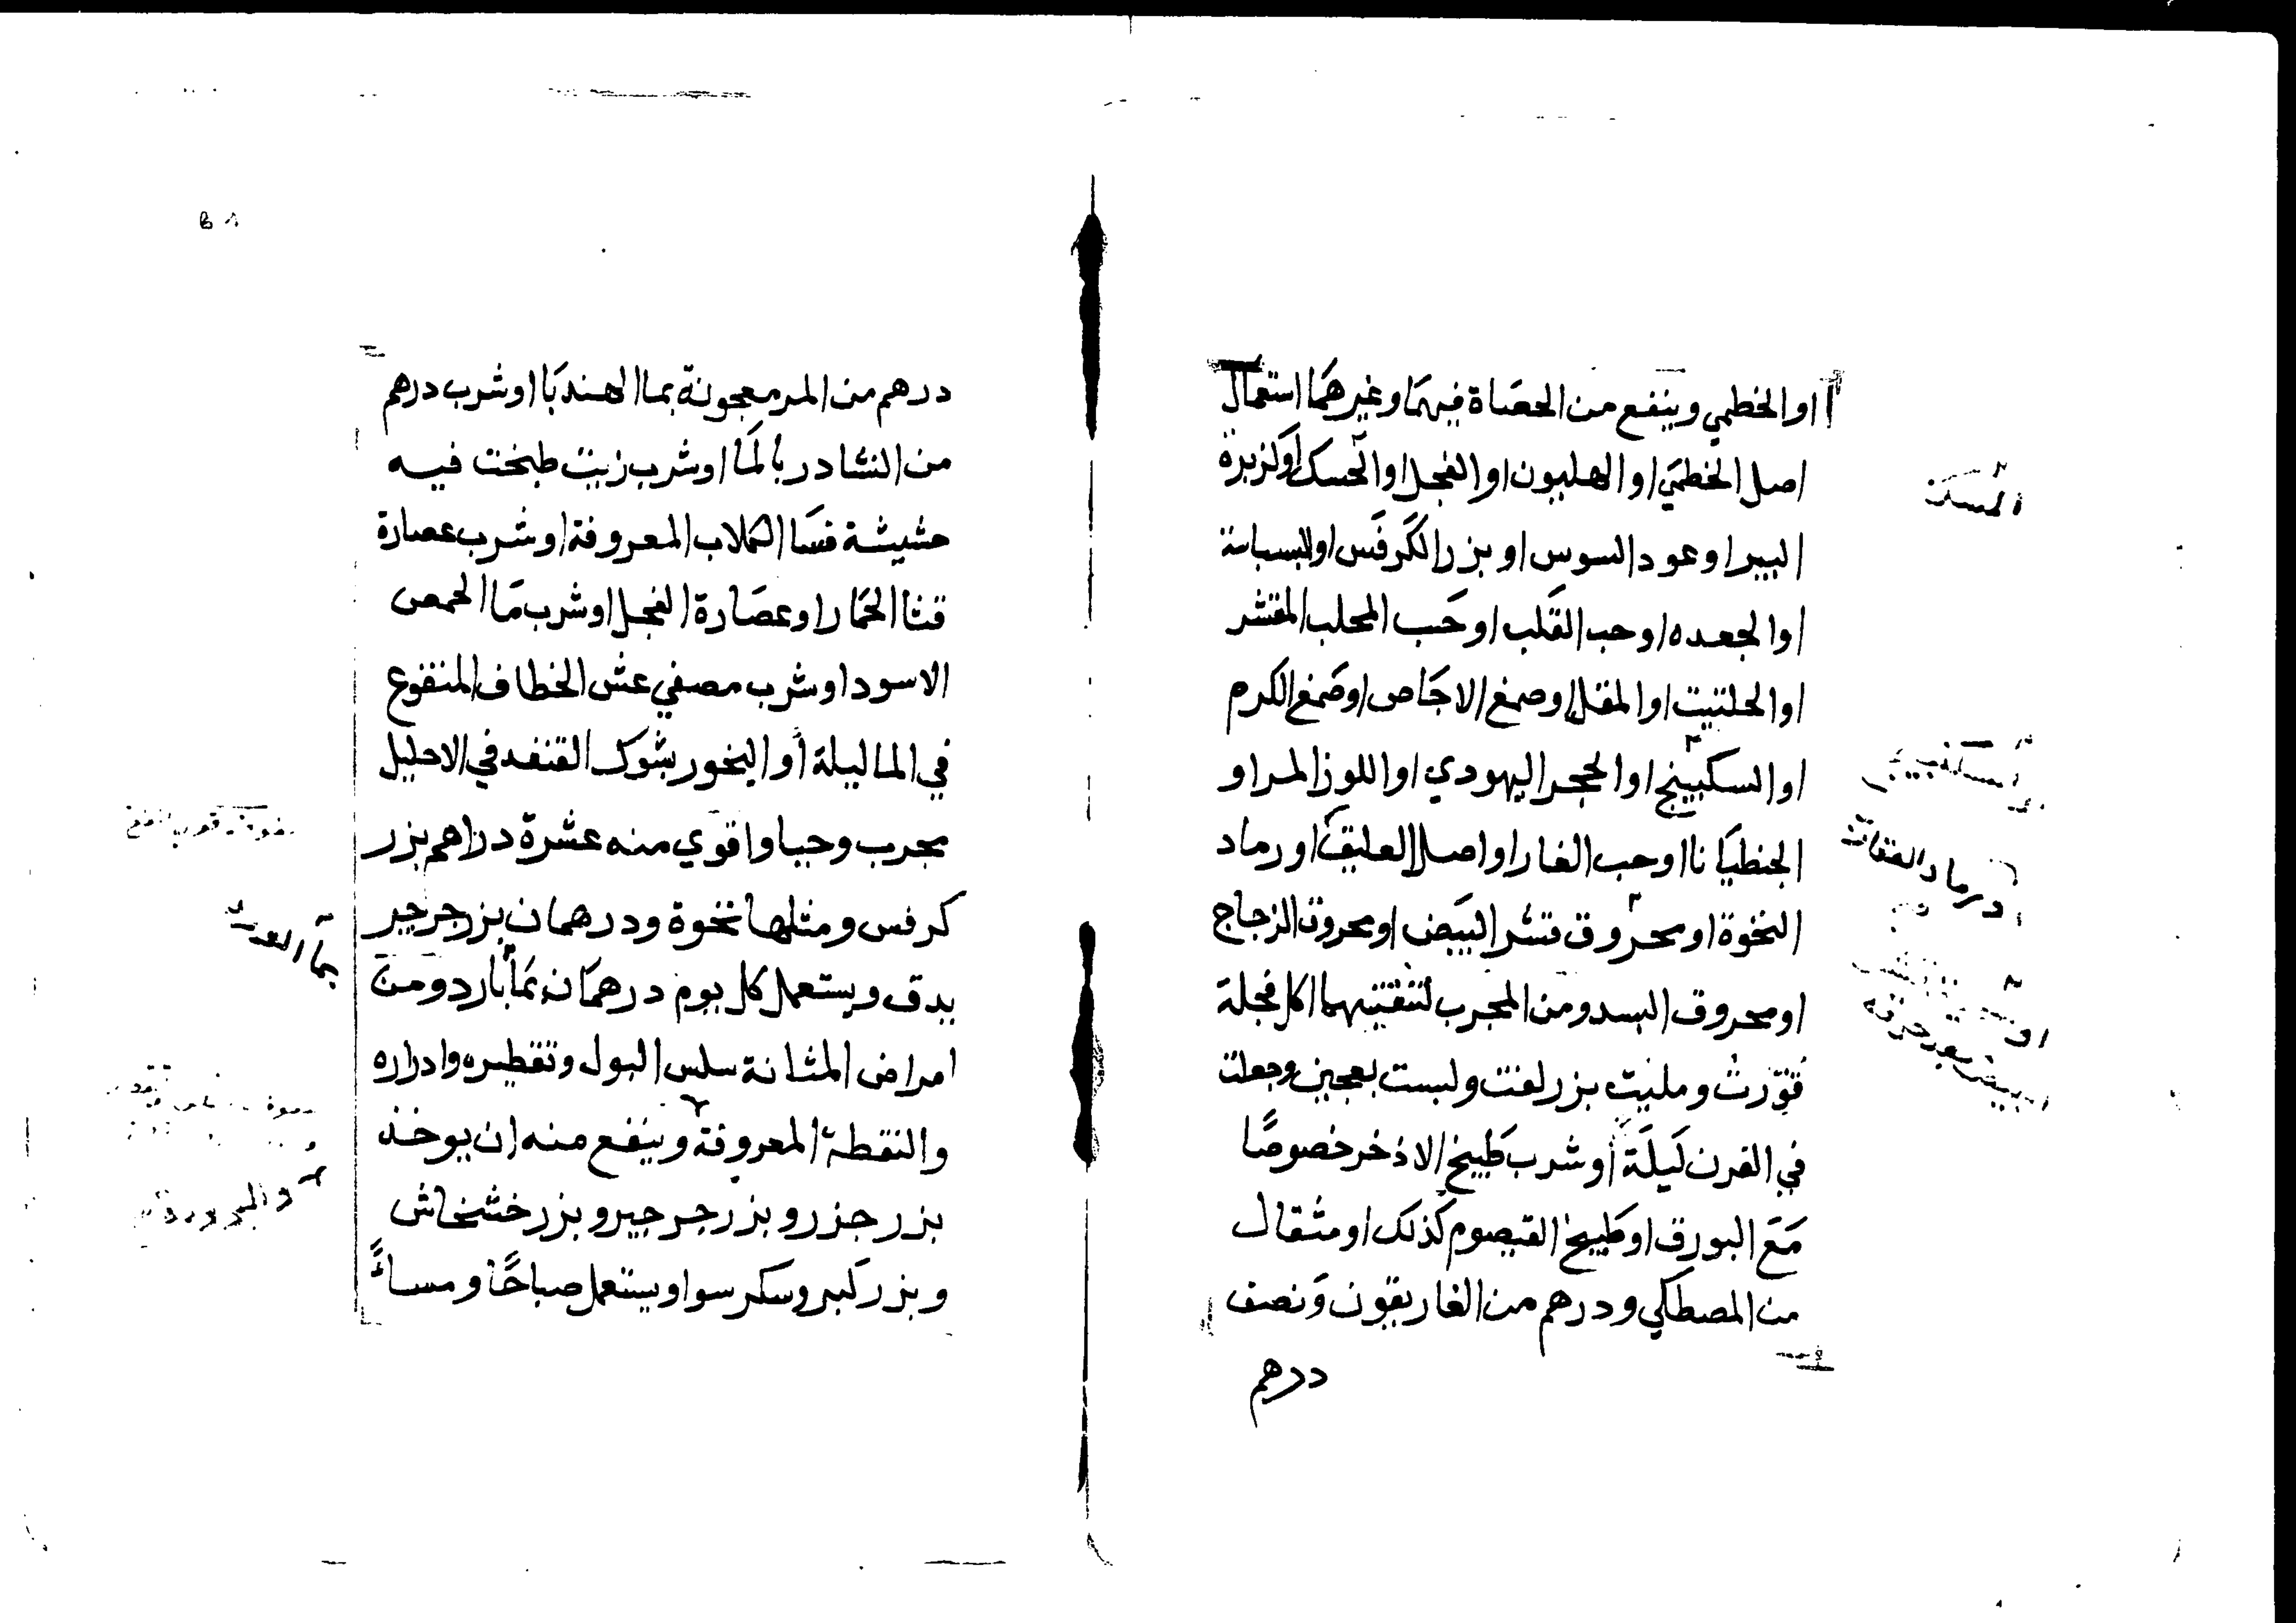 او الخطمي وينفع من الحصَاة فيهمَا وغيرهمَا استعمال
اصل الخطميَ او الهليون او الفجل او الحسك اوكزبرة
البير او عود السوس او بزر الكَرفَس او البسباسة
او الجعده او حب القَلب او حَب المحلب المقشر
او الحلتيت او المقل او صمغ الاجَاص او صَمغ الكرم
او السكبينج او الحجر اليهودي او اللوز المر او
الجنطيَانا او حب الغار او اصل العليق او رماد
النخوة او محروق قشر البيَض او محروق الزجاج
او محروق البسد ومن المجرب لتفتيتهما اكل فجلة
قوّرت ومليت بزر لفت ولبست بعجين وجعلت
في الفرن لَيلَة أو شرب طَبيخ الاذخر خصوصًا
مَعَ البورق او طَبيخ القيصوم كذلك او مثقال
من المصطكي ودرهم من الغاريقون وَنصف
درهم
درهم من المر معجونة بما الهندبَا او شرب درهم
من النشادر بالمَا او شرب زيت طبخت فيه
حشيشة فسَا الكلاب المعروفة او شرب عصارة
قثا الحمَار او عصَارة الفجل او شرب مَا الحمص
الاسود او شرب مصفي عش الخطاف المنقوع
في الما ليلة أو البخور بشوك القنفد في الاحليل
مجرب وحيا واقوي منه عشرة دراهم بزر
كرفس ومثلها نخوة ودرهمان بزر جرجير
يدق ويستعمل كل يوم درهمَان بمَا بارد ومن
امراض المثانة سلس البول وتقطيره وادراره
والنقطة المعروفة وينفع منه ان يوخذ
بزر جزر وبزر جرجير وبزر خشخاش
وبزر كبر وسكر سوا ويستعمل صباحًا ومساءً